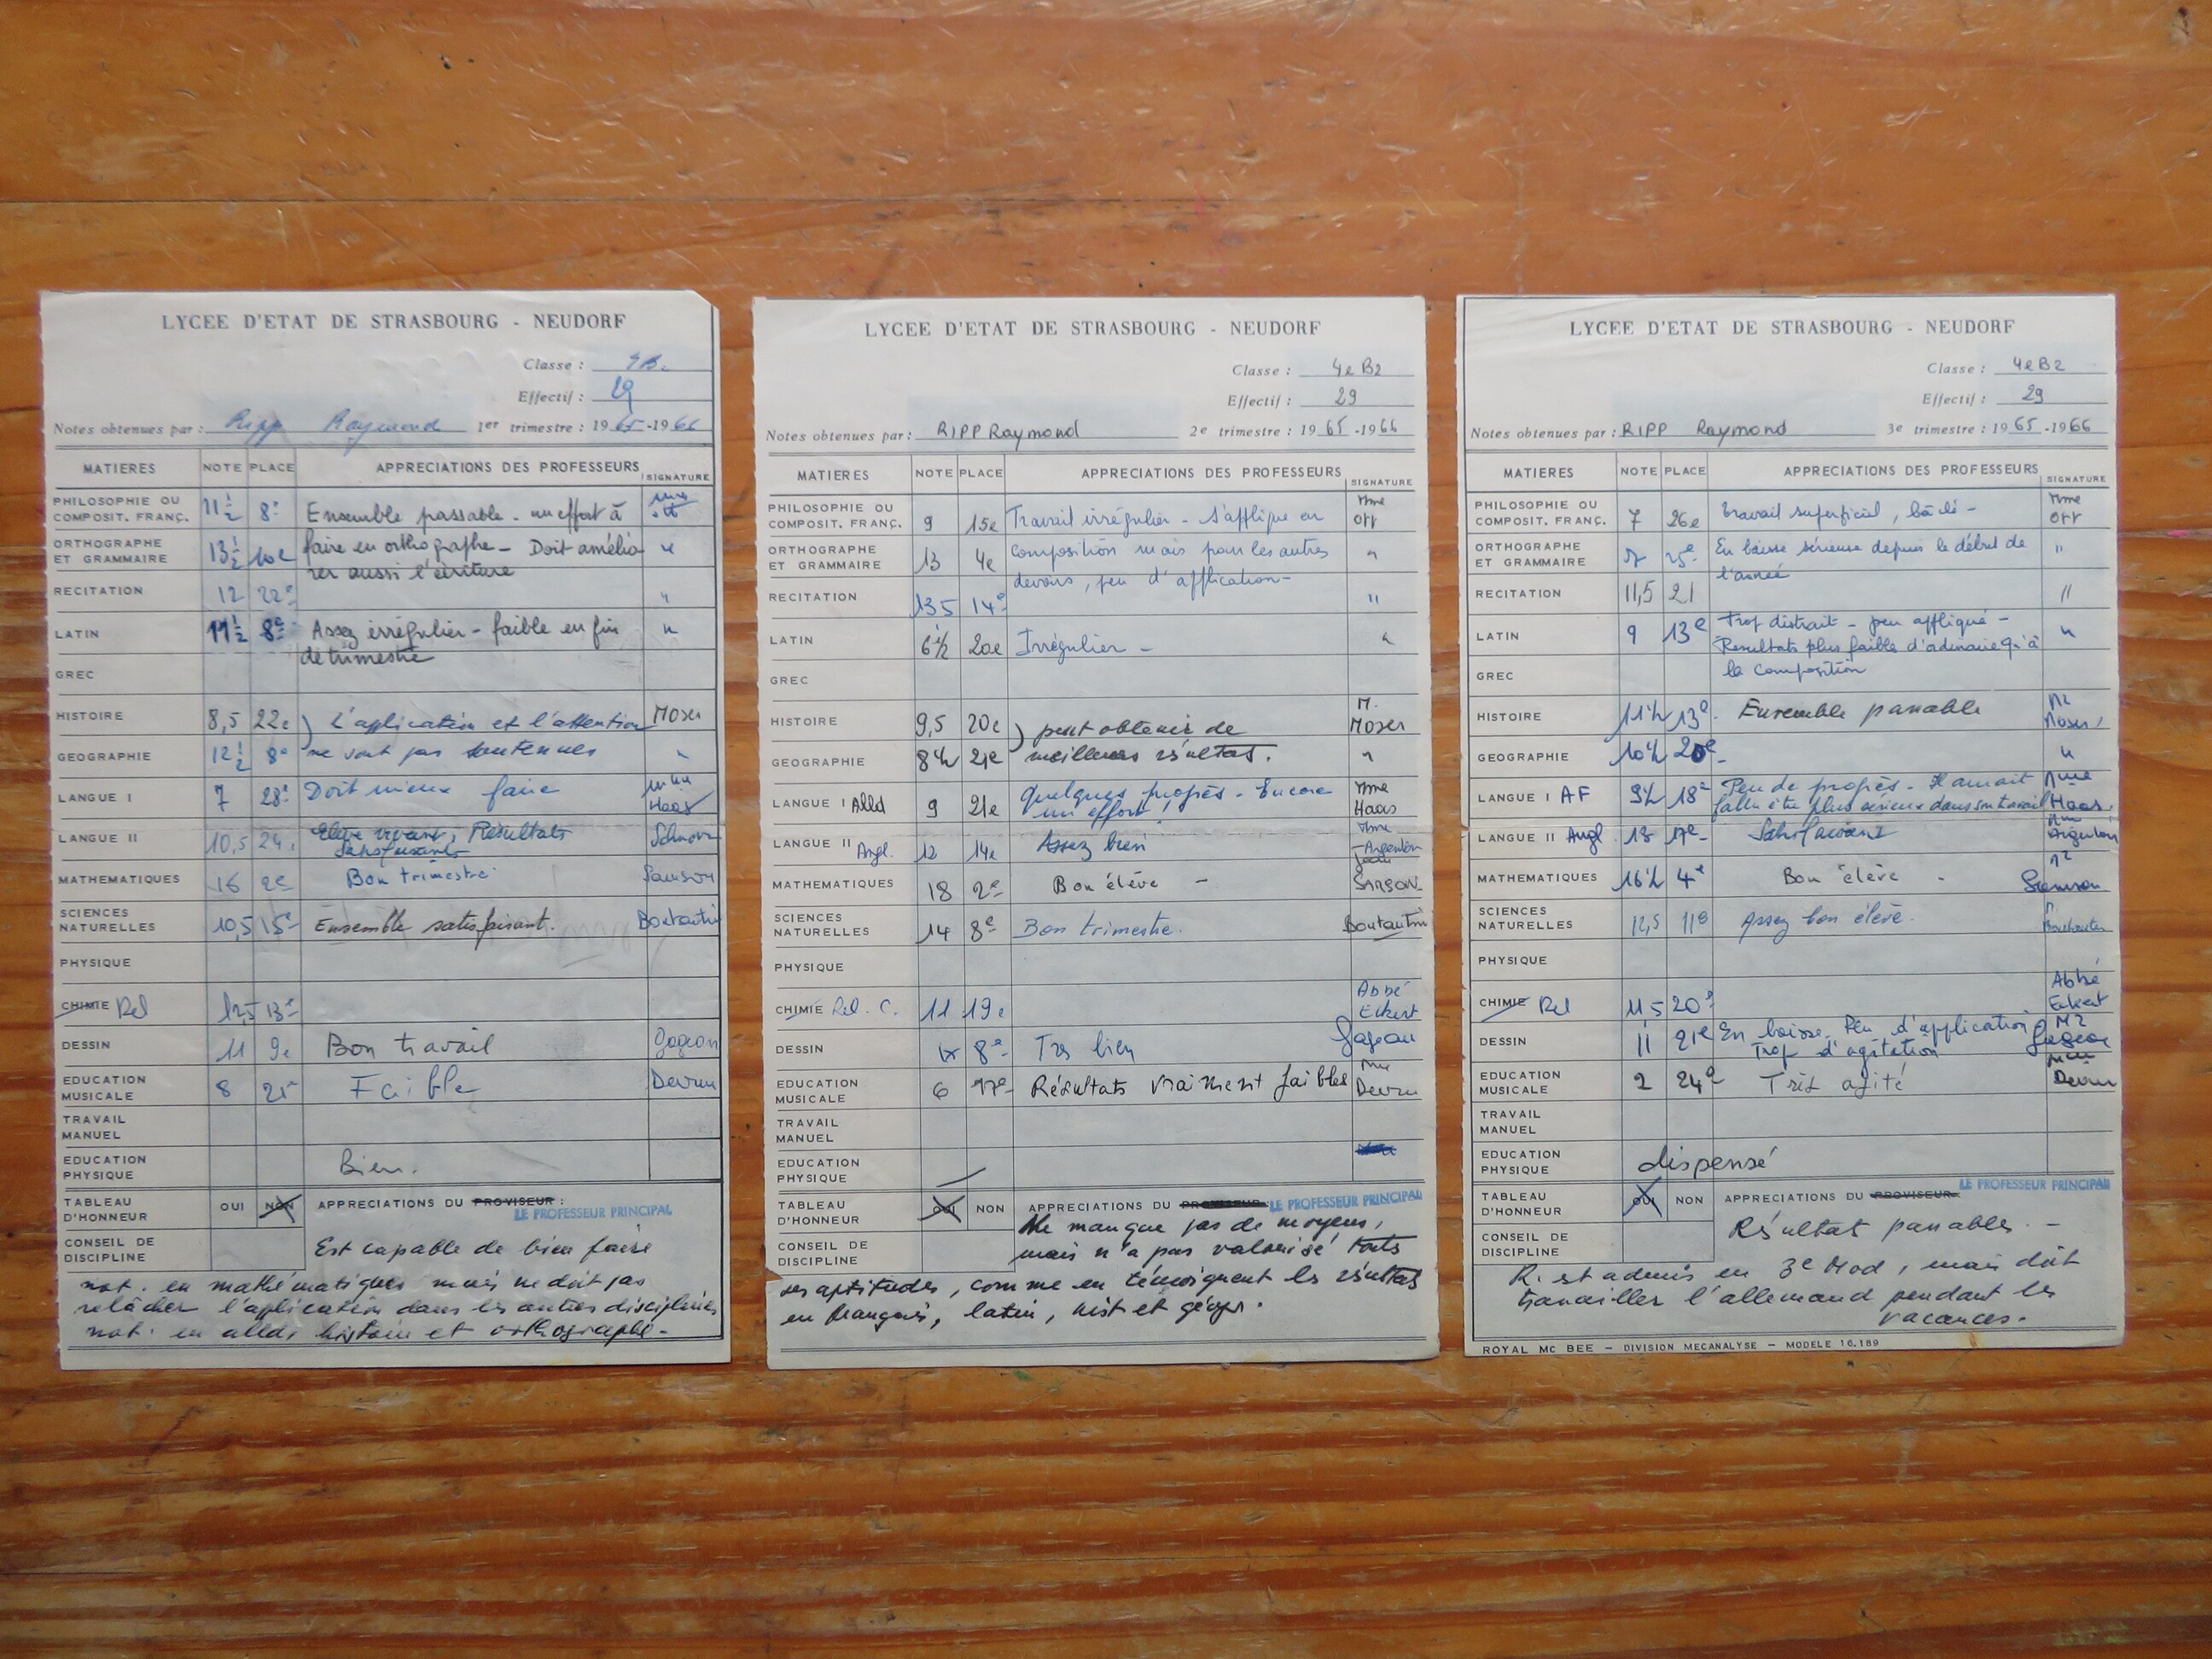 LYCEE D'ETAT DE STRASBOURG - NEUDORF
Classe :
Effectif : 29
Notes obtenues par : Ripp Raymond 1er trimestre : 1965-1966
MATIERES NOTE PLACE APPRECIATIONS DES PROFESSEURS SIGNATURE
PHILOSOPHIE OU COMPOSIT. FRANÇ. 11 1/2 8e Ensemble passable - un effort à
ORTHOGRAPHE ET GRAMMAIRE 13 1/2 10e faire en orthographe - Doit amélio-
rer aussi l'écriture
RECITATION 12 22e "
LATIN 11 1/2 8e Assez irrégulier - faible en fin "
de trimestre
GREC
HISTOIRE 8,5 22e ) L'application et l'attention Moser
GEOGRAPHIE 12 1/2 8e ne sont pas soutenues "
LANGUE I 7 28e Doit mieux faire Haas
LANGUE II 10,5 24 Elève vivant, Résultats
satisfaisants
MATHEMATIQUES 16 2e Bon trimestre Samson
SCIENCES NATURELLES 10,5 15e Ensemble satisfaisant. Boutantin
PHYSIQUE
CHIMIE Rel 12,5 13e
DESSIN 11 9e Bon travail Gageon
EDUCATION MUSICALE 8 21e Faible Devrun
TRAVAIL MANUEL
EDUCATION PHYSIQUE Bien.
TABLEAU D'HONNEUR OUI NON APPRECIATIONS DU PROVISEUR :
LE PROFESSEUR PRINCIPAL
CONSEIL DE DISCIPLINE Est capable de bien faire
not. en mathématiques mais ne doit pas
relâcher l'application dans les autres disciplines
not. en alld, histoire et orthographe.
LYCEE D'ETAT DE STRASBOURG - NEUDORF
Classe : 4e B2
Effectif : 29
Notes obtenues par : RIPP Raymond 2e trimestre : 1965-1966
MATIERES NOTE PLACE APPRECIATIONS DES PROFESSEURS SIGNATURE
PHILOSOPHIE OU COMPOSIT. FRANÇ. 9 15e Travail irrégulier - s'applique en Mme Ott
ORTHOGRAPHE ET GRAMMAIRE 13 4e composition mais pour les autres "
devoirs, peu d'application -
RECITATION 13 5 14e "
LATIN 6 1/2 20e Irrégulier - "
GREC
HISTOIRE 9,5 20e ) peut obtenir de M. Moser
GEOGRAPHIE 8 1/2 21e meilleurs résultats. "
LANGUE I Alld 9 21e Quelques progrès - Encore Mme Haas
un effort !
LANGUE II Angl. 12 14e Assez bien Mme Argenton
MATHEMATIQUES 18 2e Bon élève - SAMSON
SCIENCES NATURELLES 14 8e Bon trimestre. Boutantin
PHYSIQUE
CHIMIE Rel. C. 11 19e Abbé Eckert
DESSIN 8e Très bien Gageon
EDUCATION MUSICALE 6 Résultats vraiment faibles Devrun
TRAVAIL MANUEL
EDUCATION PHYSIQUE
TABLEAU D'HONNEUR OUI NON APPRECIATIONS DU PROVISEUR LE PROFESSEUR PRINCIPAL
Ne manque pas de moyens,
CONSEIL DE DISCIPLINE mais n'a pas valorisé toutes
ses aptitudes, comme en témoignent les résultats
en français, latin, hist et géogr.
LYCEE D'ETAT DE STRASBOURG - NEUDORF
Classe : 4e B2
Effectif : 29
Notes obtenues par : RIPP Raymond 3e trimestre : 1965-1966
MATIERES NOTE PLACE APPRECIATIONS DES PROFESSEURS SIGNATURE
PHILOSOPHIE OU COMPOSIT. FRANÇ. 7 26e travail superficiel, bâclé - Mme Ott
ORTHOGRAPHE ET GRAMMAIRE 25e En baisse sérieuse depuis le début de "
l'année
RECITATION 11,5 21 "
LATIN 9 13e Trop distrait - peu appliqué - "
Résultats plus faible d'ordinaire qu'à
la composition
GREC
HISTOIRE 11 1/2 13e Ensemble passable Mr Moser
GEOGRAPHIE 10 1/2 20e "
LANGUE I AF 9 1/2 18e Peu de progrès. Il aurait Mme
fallu être plus sérieux dans son travail Haas
LANGUE II Angl 13 17e Satisfaisant Argenton
MATHEMATIQUES 16 1/2 4e Bon élève Mr Samson
SCIENCES NATURELLES 12,5 11e Assez bon élève.
PHYSIQUE
CHIMIE Rel 11 5 20e Abbé Eckert
DESSIN 11 21e En baisse. Peu d'application Mr Gageon
Trop d'agitation
EDUCATION MUSICALE 2 24e Très agité Devrun
TRAVAIL MANUEL
EDUCATION PHYSIQUE dispensé
TABLEAU D'HONNEUR OUI NON APPRECIATIONS DU PROVISEUR LE PROFESSEUR PRINCIPAL
CONSEIL DE DISCIPLINE Résultat passables -
R. est admis en 3e Mod, mais doit
travailler l'allemand pendant les
vacances.
ROYAL MC BEE - DIVISION MECANALYSE - MODELE 16.189